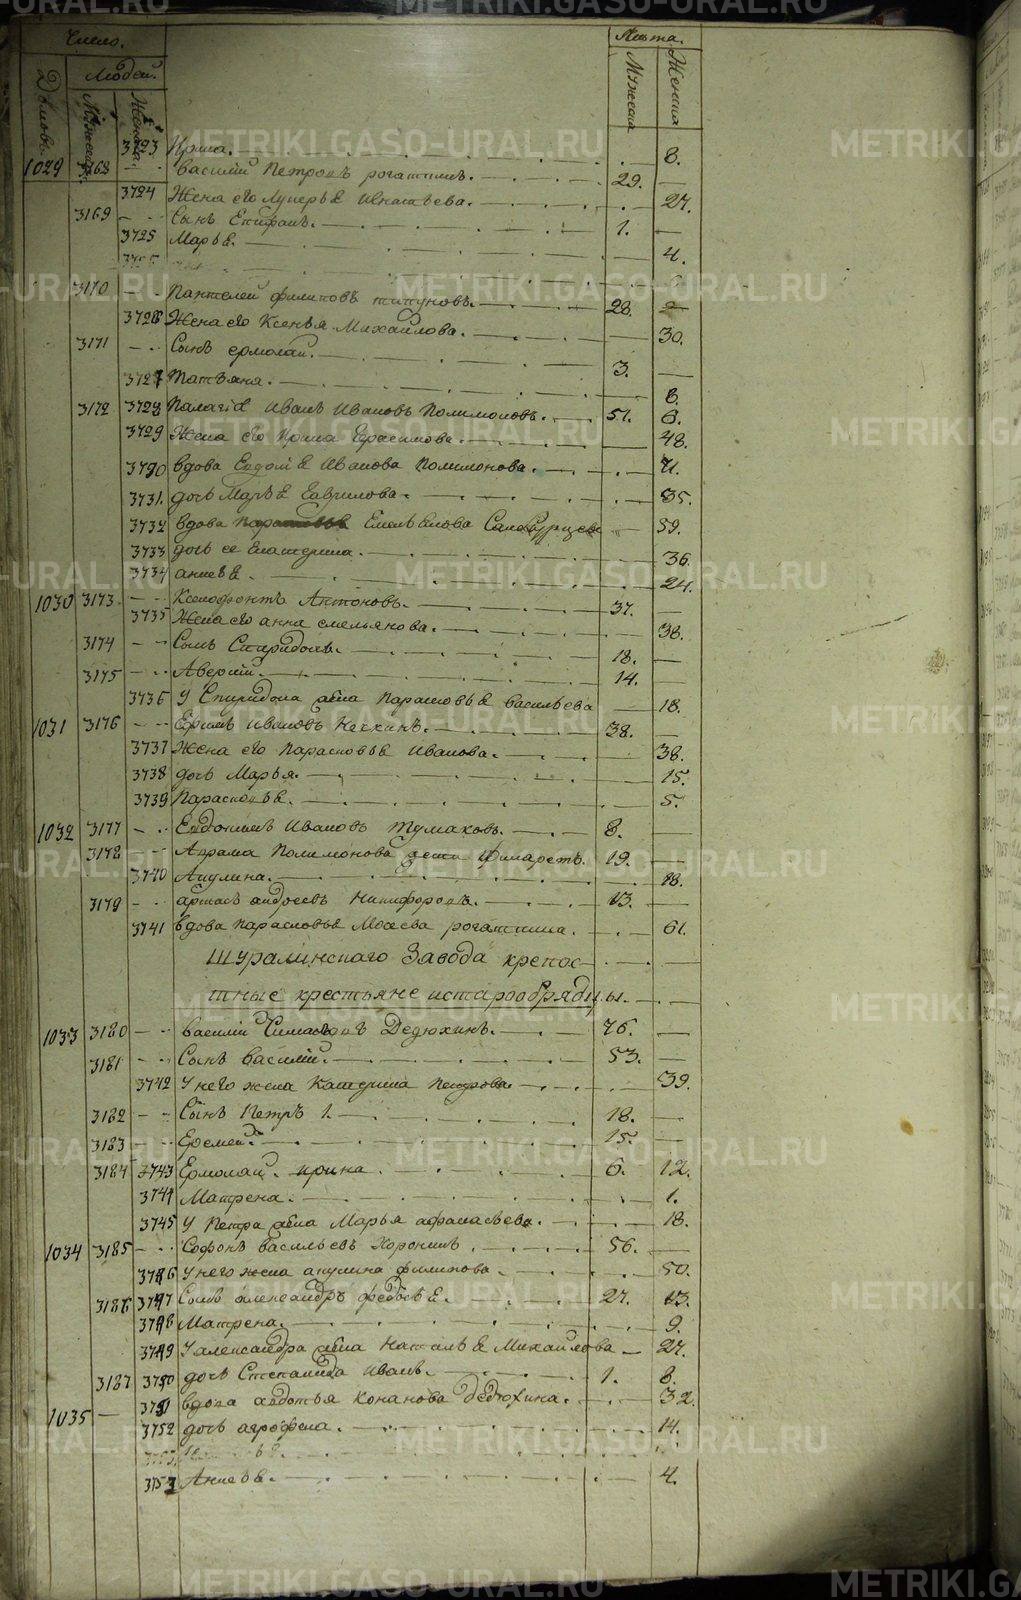 Число.
Лѣта.
Дворовъ
Людей.
Мужеска
Женска
Мужеска
Женска
3723 Ирина. 8.
1029 3168 Василий Петровъ рогаткинъ. 29.
3724 Жена его Лукерья Игнатьева. 27.
3169 Сынъ Епифанъ. 1.
3725 Марья. 4.
3170 Пантелей филиповъ типуновъ. 28.
3726 Жена его Ксенья Михайлова. 30.
3171 Сынъ ермолай. 3.
3727 Татьяна. 8.
3172 3728 Палагія Иванъ Ивановъ Полимоновъ. 51. 8.
3729 Жена его Ирина Герасимова. 48.
3730 вдова Евдокія Иванова Полимонова. 71.
3731. дочь Марья Гаврилова. 35.
3732 вдова Емельянова 59.
3733 дочь ее Екатерина. 36.
3734 анисья. 24.
1030 3173 Ксенофонтъ Антоновъ. 37.
3735 Жена его анна емельянова. 38.
3174 Сынъ Спиридонъ. 18.
3175 Аверкий. 14.
3736 У Спиридона жена Парасковья Васильева 18.
1031 3176 Ефимъ Ивановъ 38.
3737 Жена его Парасковья Иванова. 38.
3738 дочь Марья. 15.
3739 Парасковья. 5.
1032 3177 Евдокимъ Ивановъ Тумаковъ. 8.
3178 Абрама Полимонова дети Филаретъ. 19.
3740 Акулина. 18.
3179 андреевъ Никифоровъ. 13.
3741 вдова Парасковья Мосеева рогаткина. 61.
Шуралинскаго Завода крепос-
тные крестьяне истарообрядцы.
1033 3180 Василий Дедюхинъ. 76.
3181 Сынъ Василий. 53.
3742 У него жена Катерина Петрова. 39.
3182 Сынъ Петръ 1. 18.
3183 Еремей. 15.
3184 3743 Ермолай. ирина. 6. 12.
3744 Матрена. 1.
3745 У Петра жена Марья афанасьева. 18.
1034 3185 Софонъ Васильевъ 56.
3746 У него жена акулина филипова. 50.
3186 3747 Сынъ александръ федосья. 27. 13.
3748 Матрена. 9.
3749 У александра жена Наталья Михайлова 27.
3187 3750 дочь Степанида Иванъ. 1. 8.
1035 3751 вдова авдотья Конанова Дедюхина. 32.
3752 дочь агрофена. 14.
3753 Анисья. 4.
METRIKI.GASO-URAL.RU